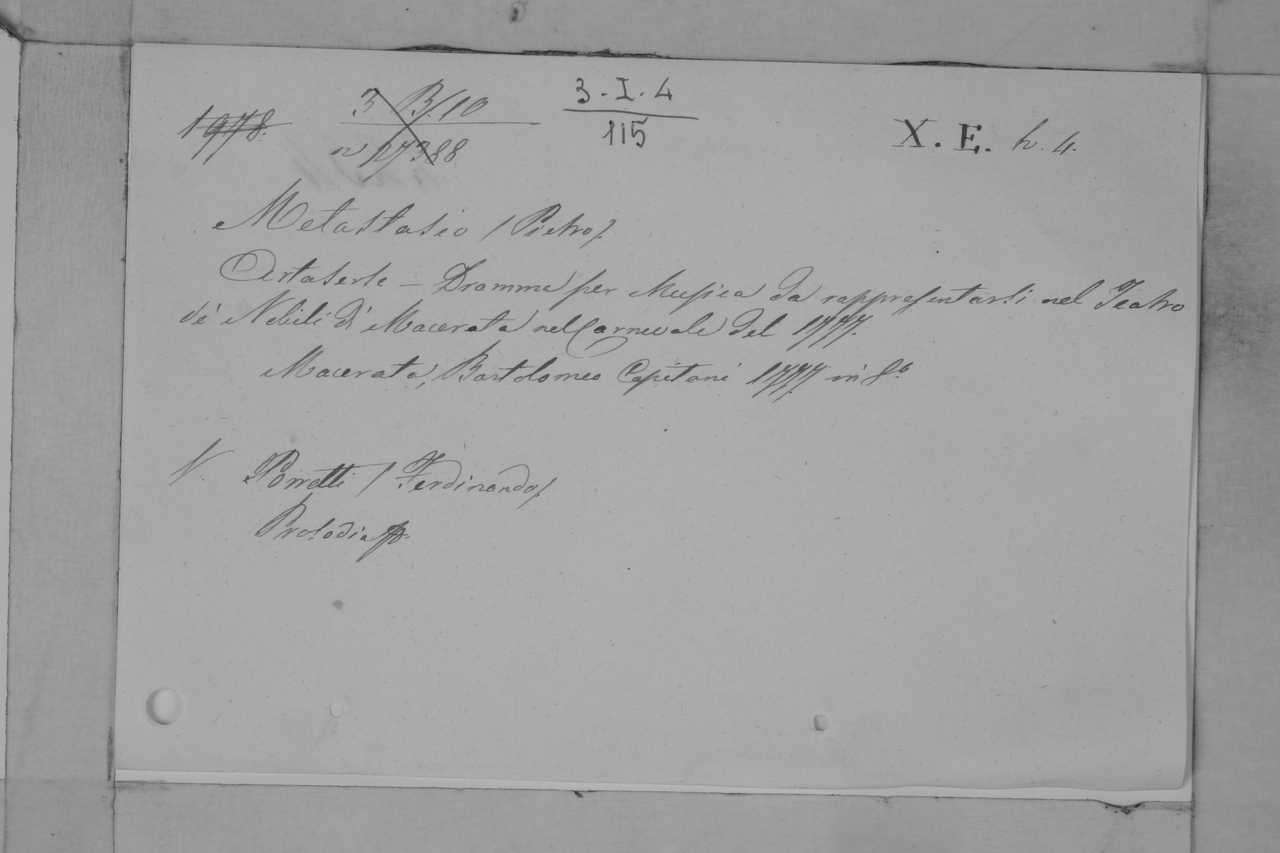 1978. 3 B. 10 3 - I - 4 X. E. h. 4.
n 27388 115
Metastasio (Pietro).
Artaserse – Dramma per Musica da rappresentarsi nel Teatro
de' Nobili di Macerata nel Carnevale del 1777.
Macerata, Bartolomeo Capitani 1777 in 8.º
V. Porretti (Ferdinando).
Prosodia